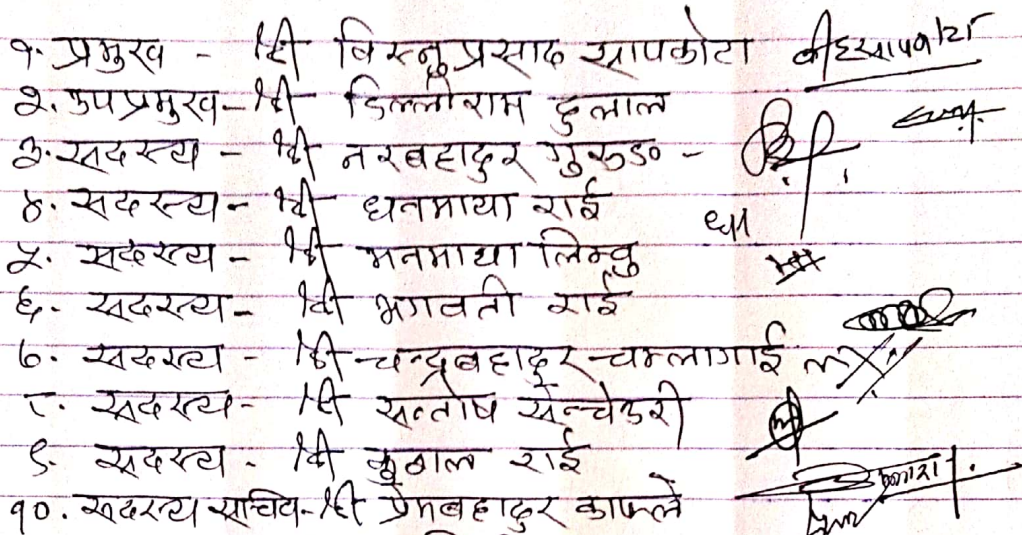 १. प्रमुख - श्री बिस्नुप्रसाद सापकोटा
२. उपप्रमुख - श्री डिल्लीराम दुलाल
३. सदस्य - श्री नरबहादुर गुरुङ -
४. सदस्य - श्री धनमाया राई
५. सदस्य - श्री मनमाया लिम्वु
६. सदस्य - श्री भगवती राई
७. सदस्य - श्री चन्द्रबहादुर चम्लागाई
८. सदस्य - श्री सन्तोष सेन्चेउरी
९. सदस्य - श्री कुबाल राई
१०. सदस्य सचिव - श्री प्रेमबहादुर काफ्ले